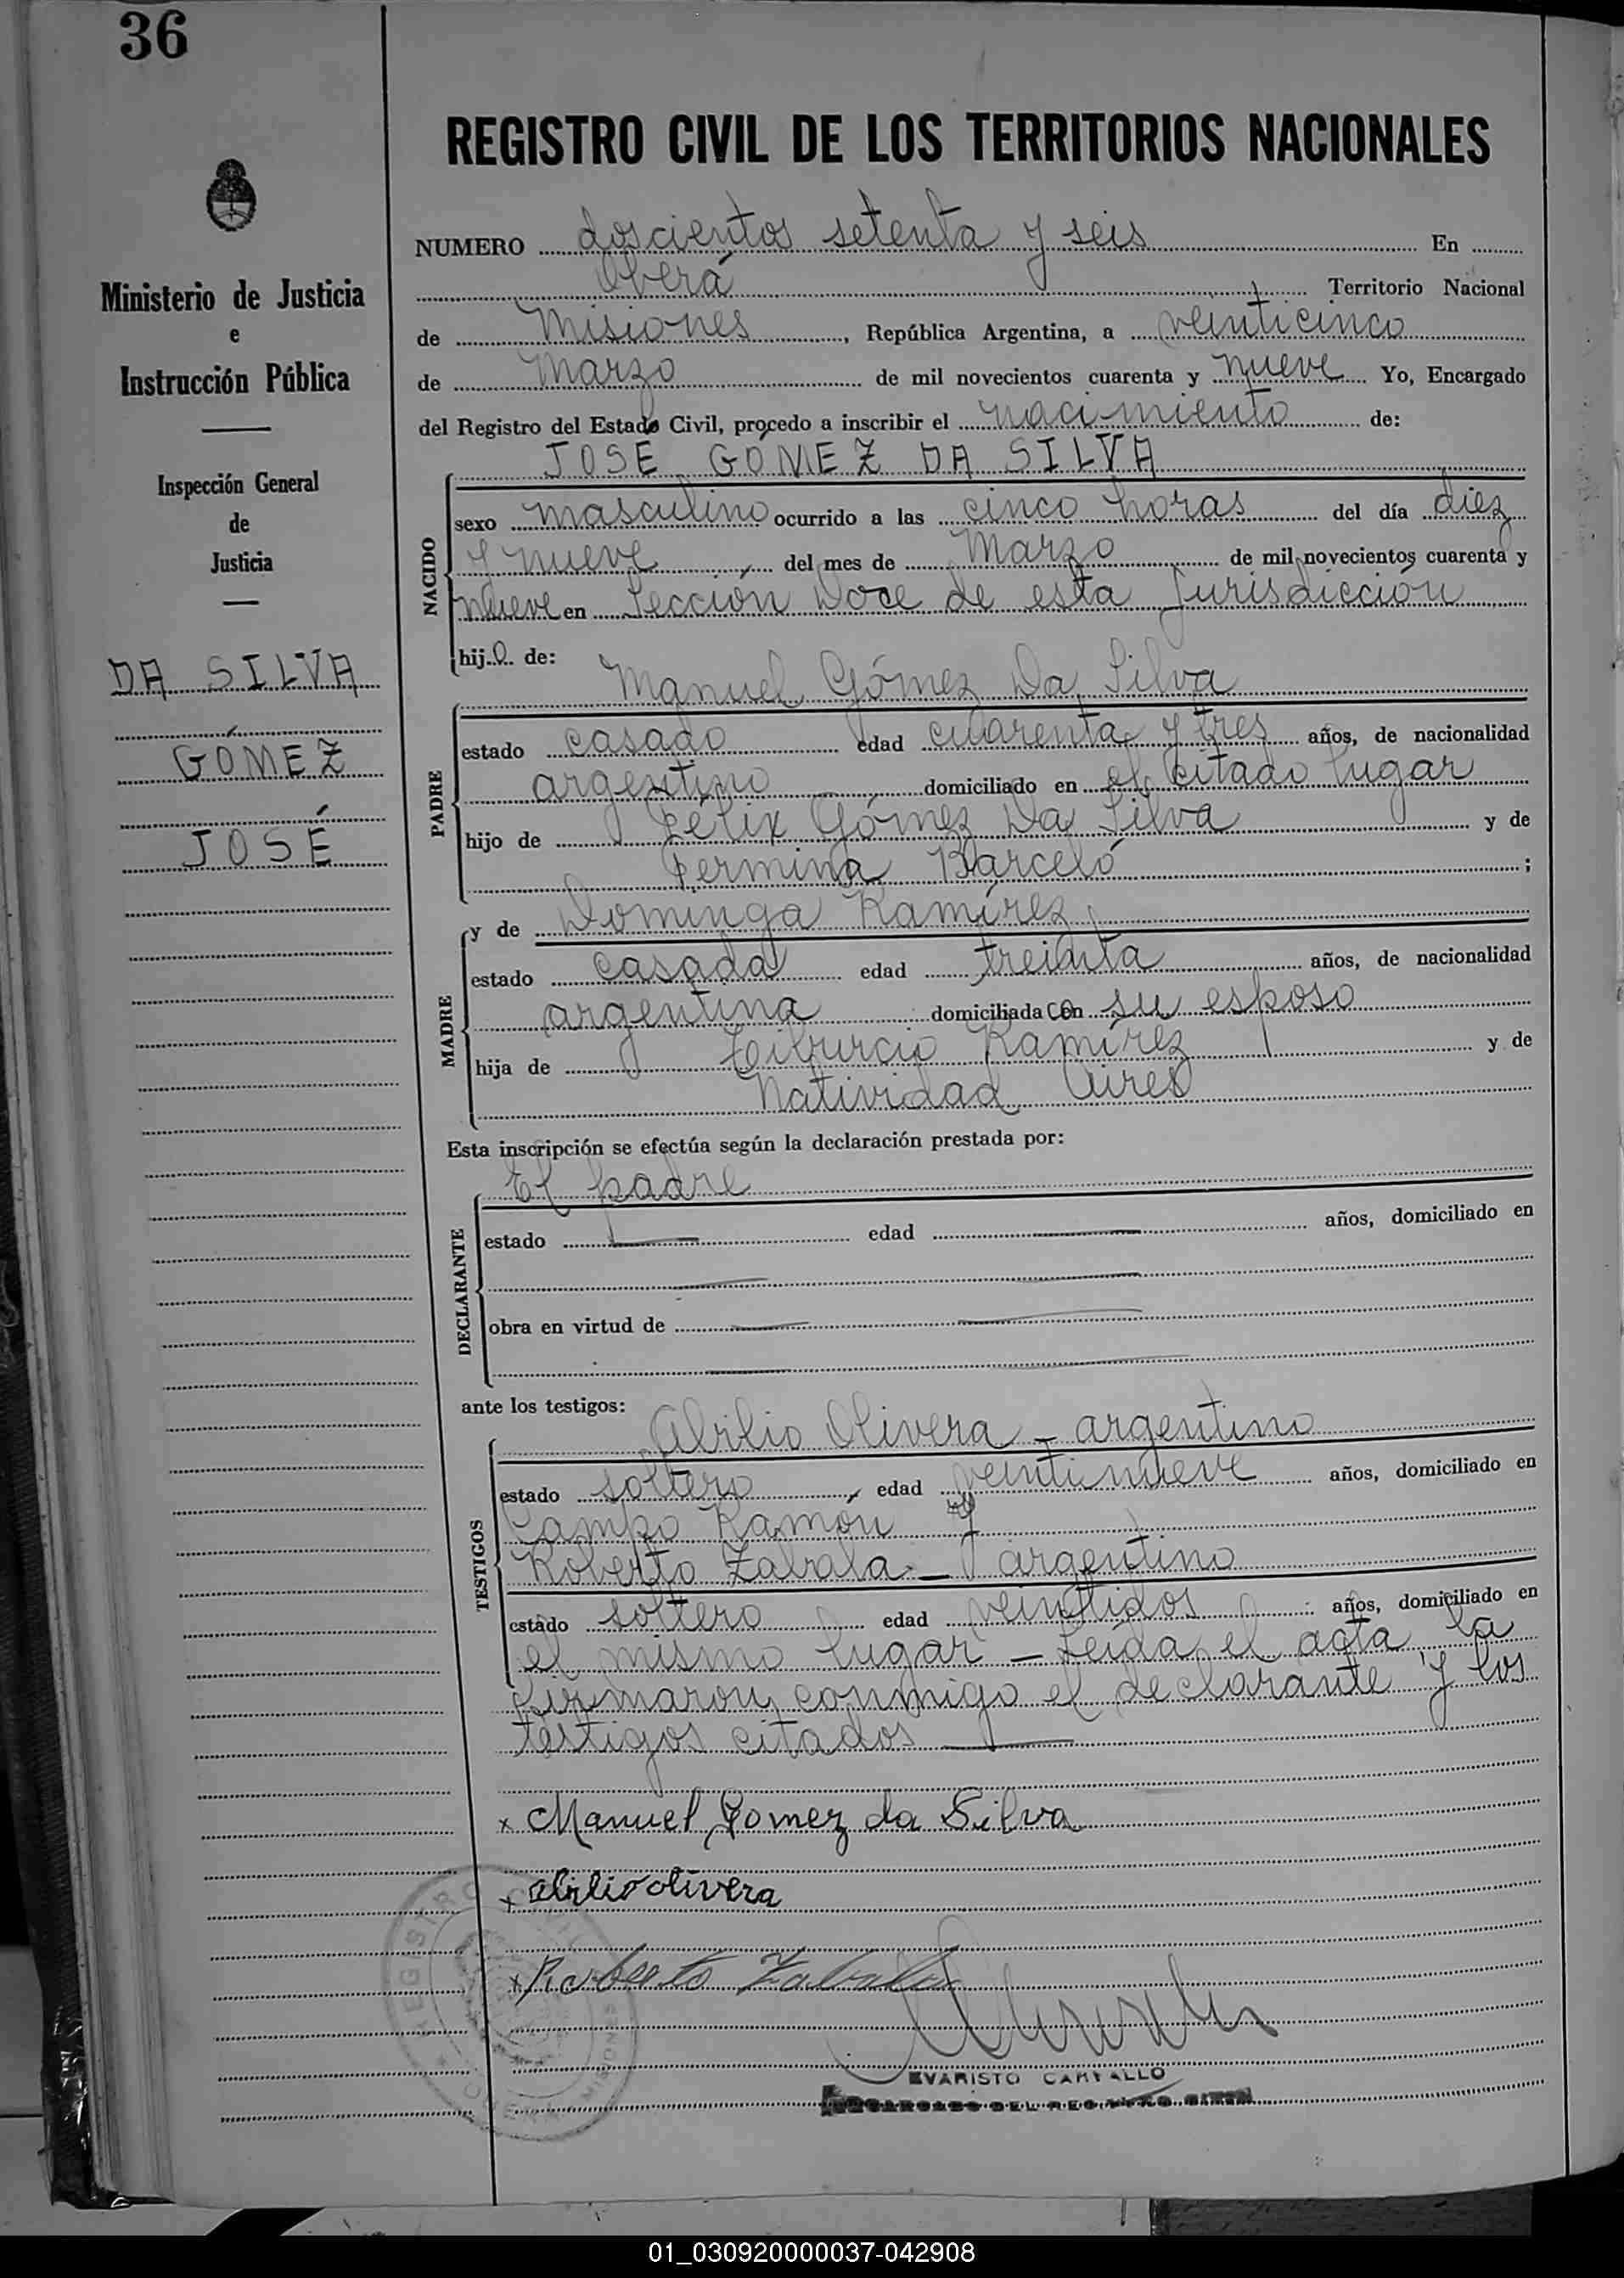 36
REGISTRO CIVIL DE LOS TERRITORIOS NACIONALES
Ministerio de Justicia
e
Instrucción Pública
Inspección General
de
Justicia
DA SILVA
GÓMEZ
JOSÉ
NUMERO doscientos setenta y seis En
Oberá Territorio Nacional
de Misiones, República Argentina, a veinticinco
de Marzo de mil novecientos cuarenta y nueve Yo, Encargado
del Registro del Estado Civil, procedo a inscribir el nacimiento de:
JOSÉ GÓMEZ DA SILVA
NACIDO
sexo masculino ocurrido a las cinco horas del día diez
y nueve del mes de Marzo de mil novecientos cuarenta y
nueve en Sección Doce de esta Jurisdicción
hijo de:
Manuel Gómez Da Silva
PADRE
estado casado edad cuarenta y tres años, de nacionalidad
argentino domiciliado en el citado lugar
hijo de Félix Gómez Da Silva y de
Fermina Barceló ;
y de Dominga Ramírez
MADRE
estado casada edad treinta años, de nacionalidad
argentina domiciliada con su esposo
hija de Tiburcio Ramírez y de
Natividad Aires
Esta inscripción se efectúa según la declaración prestada por:
El padre
DECLARANTE
estado edad años, domiciliado en
obra en virtud de
ante los testigos:
Abilio Olivera - argentino
TESTIGOS
estado soltero, edad veintinueve años, domiciliado en
Campo Ramón y
Roberto Zabala - argentino
estado soltero edad veintidos años, domiciliado en
el mismo lugar - Leída el acta la
firmaron conmigo el declarante y los
testigos citados
x Manuel Gomez da Silva
x abilio olivera
x Roberto Zabala
EVARISTO CARVALLO
ENCARGADO DEL REGISTRO CIVIL
REGISTRO CIVIL
MISIONES
01_030920000037-042908